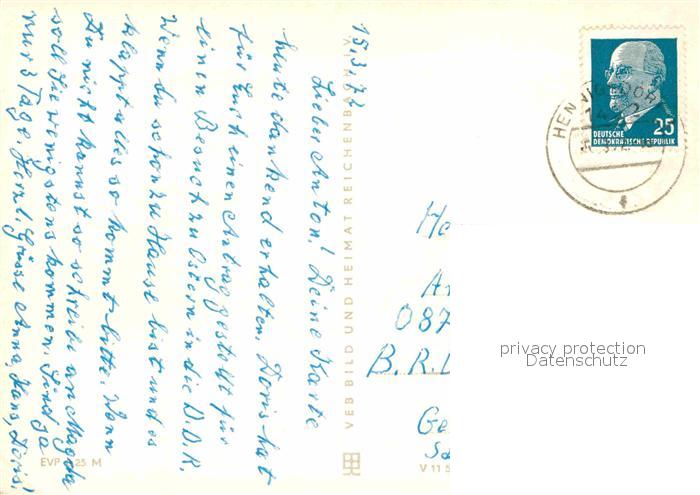 15.3.72
Lieber Anton! Deine Karte
heute dankend erhalten. Doris hat
für Euch einen Antrag gestellt für
einen Besuch zu Ostern in die D.D.R.
Wenn du schon zu Hause bist und es
klappt alles so kommt bitte. Wenn
Du nicht kannst so schreibe an Magda
soll Sie wenigstens kommen. Sind ja
nur 3 Tage. Herzl. Grüsse Anna, Hans, Doris!
VEB BILD UND HEIMAT REICHENBACH
EVP 25 M
V 11 5
DEUTSCHE
DEMOKRATISCHE REPUBLIK
25
HENNIGSDORF
087
B.R.D
Ge
privacy protection
Datenschutz